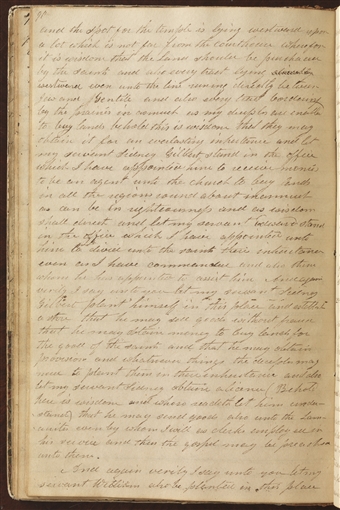 and the spot for the temple is lying westward upon
a lot which is not far from the courthouse wherefore
it is wisdom that the Land should be purchased
by the saints and also every tract lying
westward even unto the line runing directly between
Jew and Gentile and also every tract bordering
by the prairies in asmuch as my deciples are enable
to buy lands behold this is wisdom that they may
obtain it for an everlasting inheritence and let
my servent Sidney Gilbert stand in the office
which I have appointed him to receive monies
to be an agent unto the church to buy lands
in all the regions round about inasmuch
as can be in righteousness and as wisdom
shall direct and let my servent stand
in the office which I have appointed unto
him to divide unto the saints their inheritence
even as I have commanded and also them
whom he has appointed to assist him
verily I say unto you let my servent Sidney
Gilbert plant himself in this place and establish
a store that he may sell goods without fraud
that he may obtain money to buy lands for
the good of the saints and that he may obtain
whatsoever things the deciples may
need to plant them in their inheritence and also
let my servent Sidney obtain a licence Behold
here is wisdom and whoso readeth let him under
stand that he may send goods also unto the Lam
anites even by whom I will as clerks employed in
his servise and then the gospel may be preached
unto them.
And again verily I say unto you let my
servent William also be planted in this place